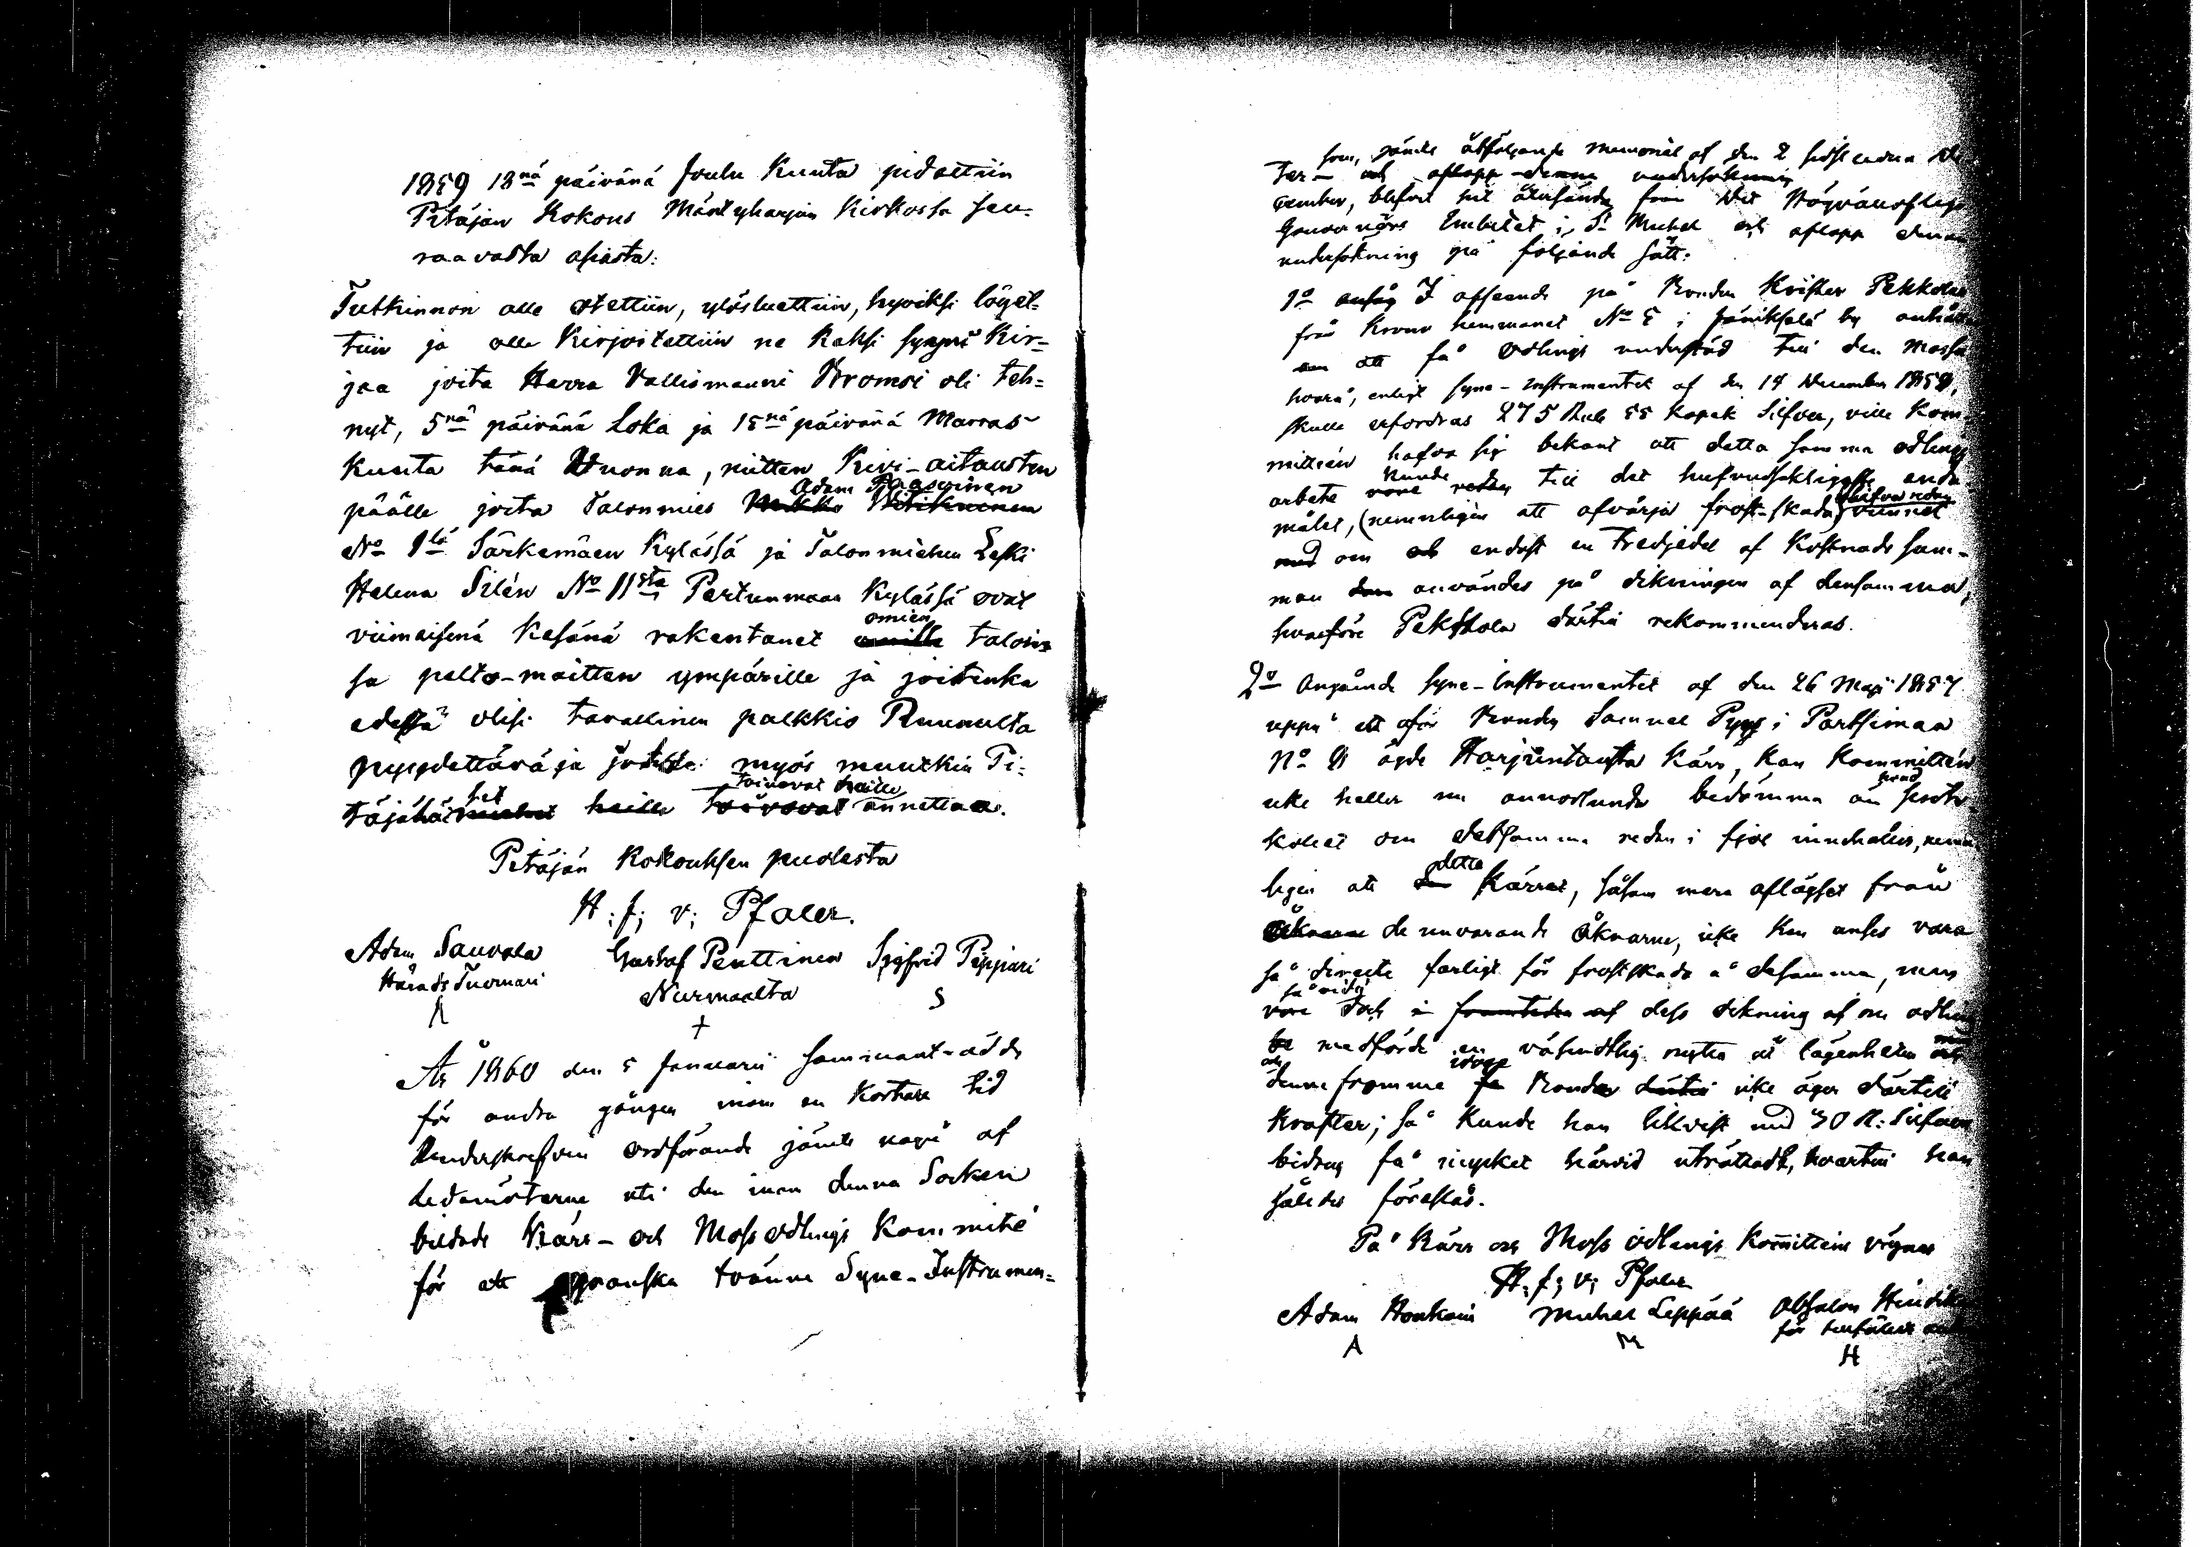 1859 18na päivänä Joulu Kuuta pidettiin
Pitäjän Kokous Mäntyharjun Kirkossa seu-
raavasta asiasta:
Tutkinnon alle otettiin, ylösluettiin, hyviksi löyet-
tiin ja alle Kirjoitettiin ne Kaksi syyni Kir-
jaa joita Herra Vallesmanni Bromsi oli teh-
nyt, 5nä päivänä Loka ja 15nä päivänä Marras-
Kuuta tänä Wuonna, niitten Kivi-aitausten
Adam Paasoinen
päälle joita Talonmies
No 9lä Särkemäen Kylässä ja Talonmiehen Leski
Helena Silén No 11sta Pertunmaan Kylässä ovat
omien
viimeisenä Kesänä rakentanet taloin-
sa pelto-maitten ympärille ja joitenka
edestä olisi tavallinen palkkio Ruunulta
pyydettävä ja myös muutkin Pi-
het toivovat heille
täjähä heille toivovat annettaa.
Pitäjän Kokouksen puolesta
H: f; v; Pfaler.
Adam Sauvala Gustaf Penttinen Sigfrid Pippuri
Härads Tuomari Nurmaalta S
A +
År 1860 den 5 Januarii sammanträdde
för andra gången inom en Kortare tid
Underskrefven ordförande jämte några af
Ledamöterne uti den inom denna Socken
bildade Kärr- och Moss odlings Kommité
för att granska tvänne Syne-Instrumen-
som, jämte åtföljande memorial af den 2 sidstledna De-
ter och aflopp denna undersökning
cember, blifvit hit återsände från Det Högvälofliga
Gouvernörs Embetet i St Michel och aflopp denna
undersökning på följande sätt:
1o I afseende på Bonden Krister Pekkola
från Krono hemmanet No 5 i Jänikselä by anhållan
om att få odlings understöd till den Mossa
hvarå, enligt Syne-Instrumentet af den 14 December 1858,
skulle erfordras 275 Rub 55 Kopek Silfver, ville Kom-
mittén hafva sig bekant att detta samma odlings
kunde
arbete vore redan till det hufvudsakligaste ända
blifva redan
målet, (nemnligen att afvärja frost-skada) vunnet
med om endast en Tredjedel af Kostnads sum-
man användes på dikningen af densamma,
hvarföre Pekkola därtill rekommenderas.
2o Angående Syne-Instrumentet af den 26 Maji 1857
uppå ett åfvan Bonden Samuel Pyy i Partsimaa
No 8 ägde Harjuntausta Kärr, kan Kommittén
hvad
icke heller nu annorlunda bedömma än proto-
kollet om detsamma redan i fjol innehåller, nemn-
detta
ligen att Kärret, såsom mera aflägset från
de nuvarande Åkrarne, icke kan anses vara
så directe farligt för frostskada å desamma, men
så vida
vore dock i framtiden af dess dikning af om odlin-
medförde en väsendtlig nytta åt lägenheten
denna fromme Bonde icke äger därtill
Krafter; så kunde han likvist med 30 R: Silfver
bidrag få mycket härvid uträttadt, hvartill han
således föreslås.
På Kärr och Moss odlings Kommitténs vägnar
H; f; v; Pfaler
Adam Honkain Michel Leppää Absalon Heindik
A M H